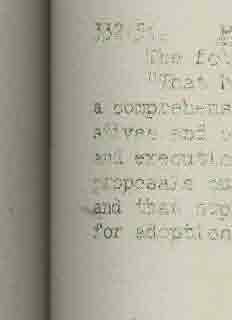 332/51.
The fol
"That
a comprehens
and
and executio
proposals
and that
for adoption